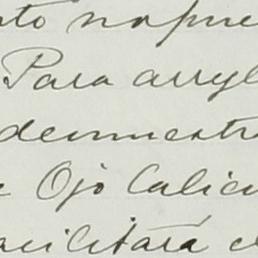 to no pue
Para arregl
demuestra
Ojo Calien
facilitará el